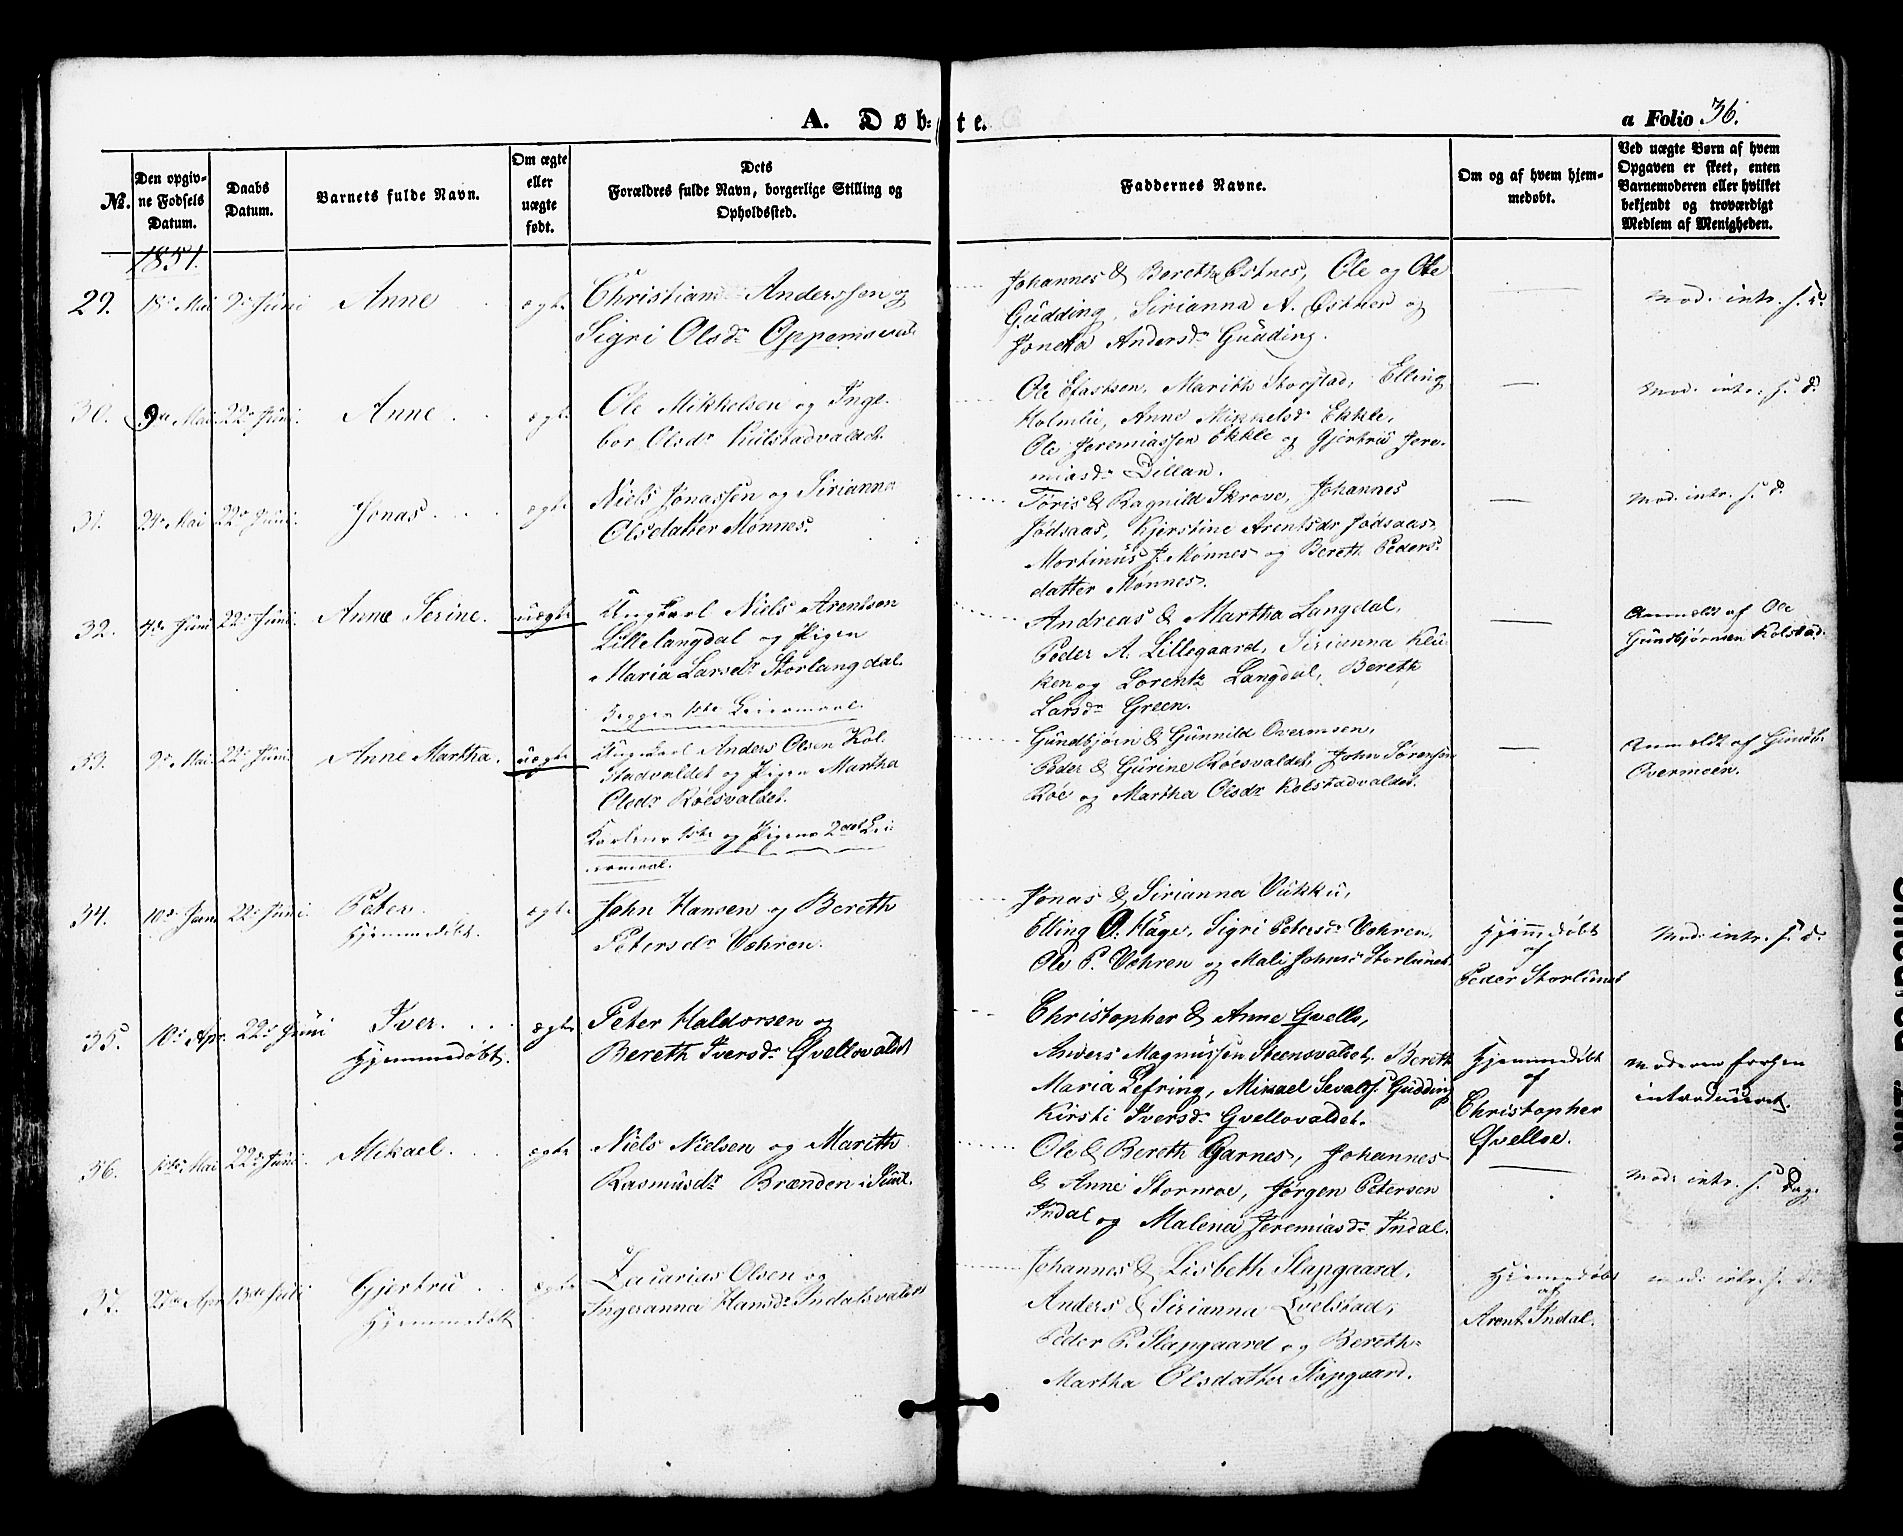 A. Døb=te.
a Folio 36.
№.
Den opgiv-
ne Fødsels
Datum.
Daabs
Datum.
Barnets fulde Navn.
Om ægte
eller
uægte
født.
Dets
Forældres fulde Navn, borgerlige Stilling og
Opholdssted.
Faddernes Navne.
Om og af hvem hjem-
medøbt.
Ved uægte Børn af hvem
Opgaven er skeet, enten
Barnemoderen eller hvilket
bekjendt og troværdigt
Medlem af Menigheden.
1851.
29. Mai Juni Anne ægte
Christian Anderssen og
Sigri Olsdr
Johannes & Bereth Østnes, Ole og Ole
Gudding, Sirianna A. Østnes og
Anders dr Gudding.
Mod. intr. s. d.
30. Mai 22de Juni Anne ægte
Ole Mikkelsen og Inge-
bor Olsdr
Ole Marith Storstad, Elling
Holmlie, Anne Mikkelsdr Ekkle,
Ole Jeremiassen Ekkle og Gjertru Jere-
miasdr Dillan.
Mod. intr. s. d.
31. Mai 22de Juni Jonas ægte
Niels Jonassen og Sirianna
Olsdatter Mønnes.
Toris & Ragnild Skrove, Johannes
Jødsaas, Kjerstine Arentsdr Jødsaas,
Mortinus J. Mønnes og Bereth Peders-
datter Mønnes.
Mod. intr. s. d.
32. Juni 22de Juni Anne Serine. uægte
Ungkarl Niels Arentsen
Lillelangdal og Pigen
Maria Larsdr Storlangdal.
Begges 1ste Leiermaal.
Andreas & Martha Langdal,
Peder A. Lillegaard, Sirianna Klu-
ken og Lorentz Langdal, Bereth
Larsdr Green.
Anmeldt af Ole
Gundbjørnsen Kolstad.
33. 9de Mai 22de Juni Anne Martha. uægte
Ungkarl Anders Olsen Kol-
stadvaldet og Pigen Martha
Olsdr Røesvaldet.
Karlens 1ste og Pigens 2det Lei-
ermaal.
Gundbjørn & Gunnild Overmoen,
Peder & Gurine Røesvaldet, John Sørensen
Røe og Martha Olsdr Kolstadvaldet.
Anmeldt af Gundb.
Overmoen.
34. 22de Juni Peter. ægte
Hjemmedøbt.
John Hansen og Bereth
Petersdr Vohren.
Jonas & Sirianna Vukku,
Elling O. Hage, Sigri Petersdr Vohren,
Ole P. Vohren og Mali Storlunet.
Hjemmedøbt
af
Peder Storlunet
Mod. intr. s. d.
35. 10de Apr. 22de Juni Iver. ægte
Hjemmedøbt.
Peter Haldorsen og
Bereth Iversdr Qvellovaldet
Christopher & Anne Qvello,
Anders Magnussen Steensvaldet, Bereth
Maria Lefring, Mikael Sevalds. Gudding
Kirsti Iversdr Qvellovaldet.
Hjemmedøbt
af
Christopher
Qvelloe.
Moderen forhen
introduceret.
36. Mai 22de Juni Mikael. ægte
Niels Nielsen og Marith
Rasmusdr Brænden i
Ole & Bereth Garnes, Johannes
& Anne Stormoe, Jørgen Petersen
Indal og Malena Jeremiasdr Indal.
Mod. intr. s. Dag.
37. 27de Apr. 13de Juli Gjertru ægte
Hjemmedøbt
Zacarias Olsen og
Ingeranna Hansdr Indalsvaldet
Johannes & Lisbeth Slapgaard,
Anders & Sirianna Qvelstad,
Peder P. Slapgaard og Bereth-
Martha Olsdatter Slapgaard.
Hjemmedøbt
af
Arent Indal.
Mod. intr. s. d.